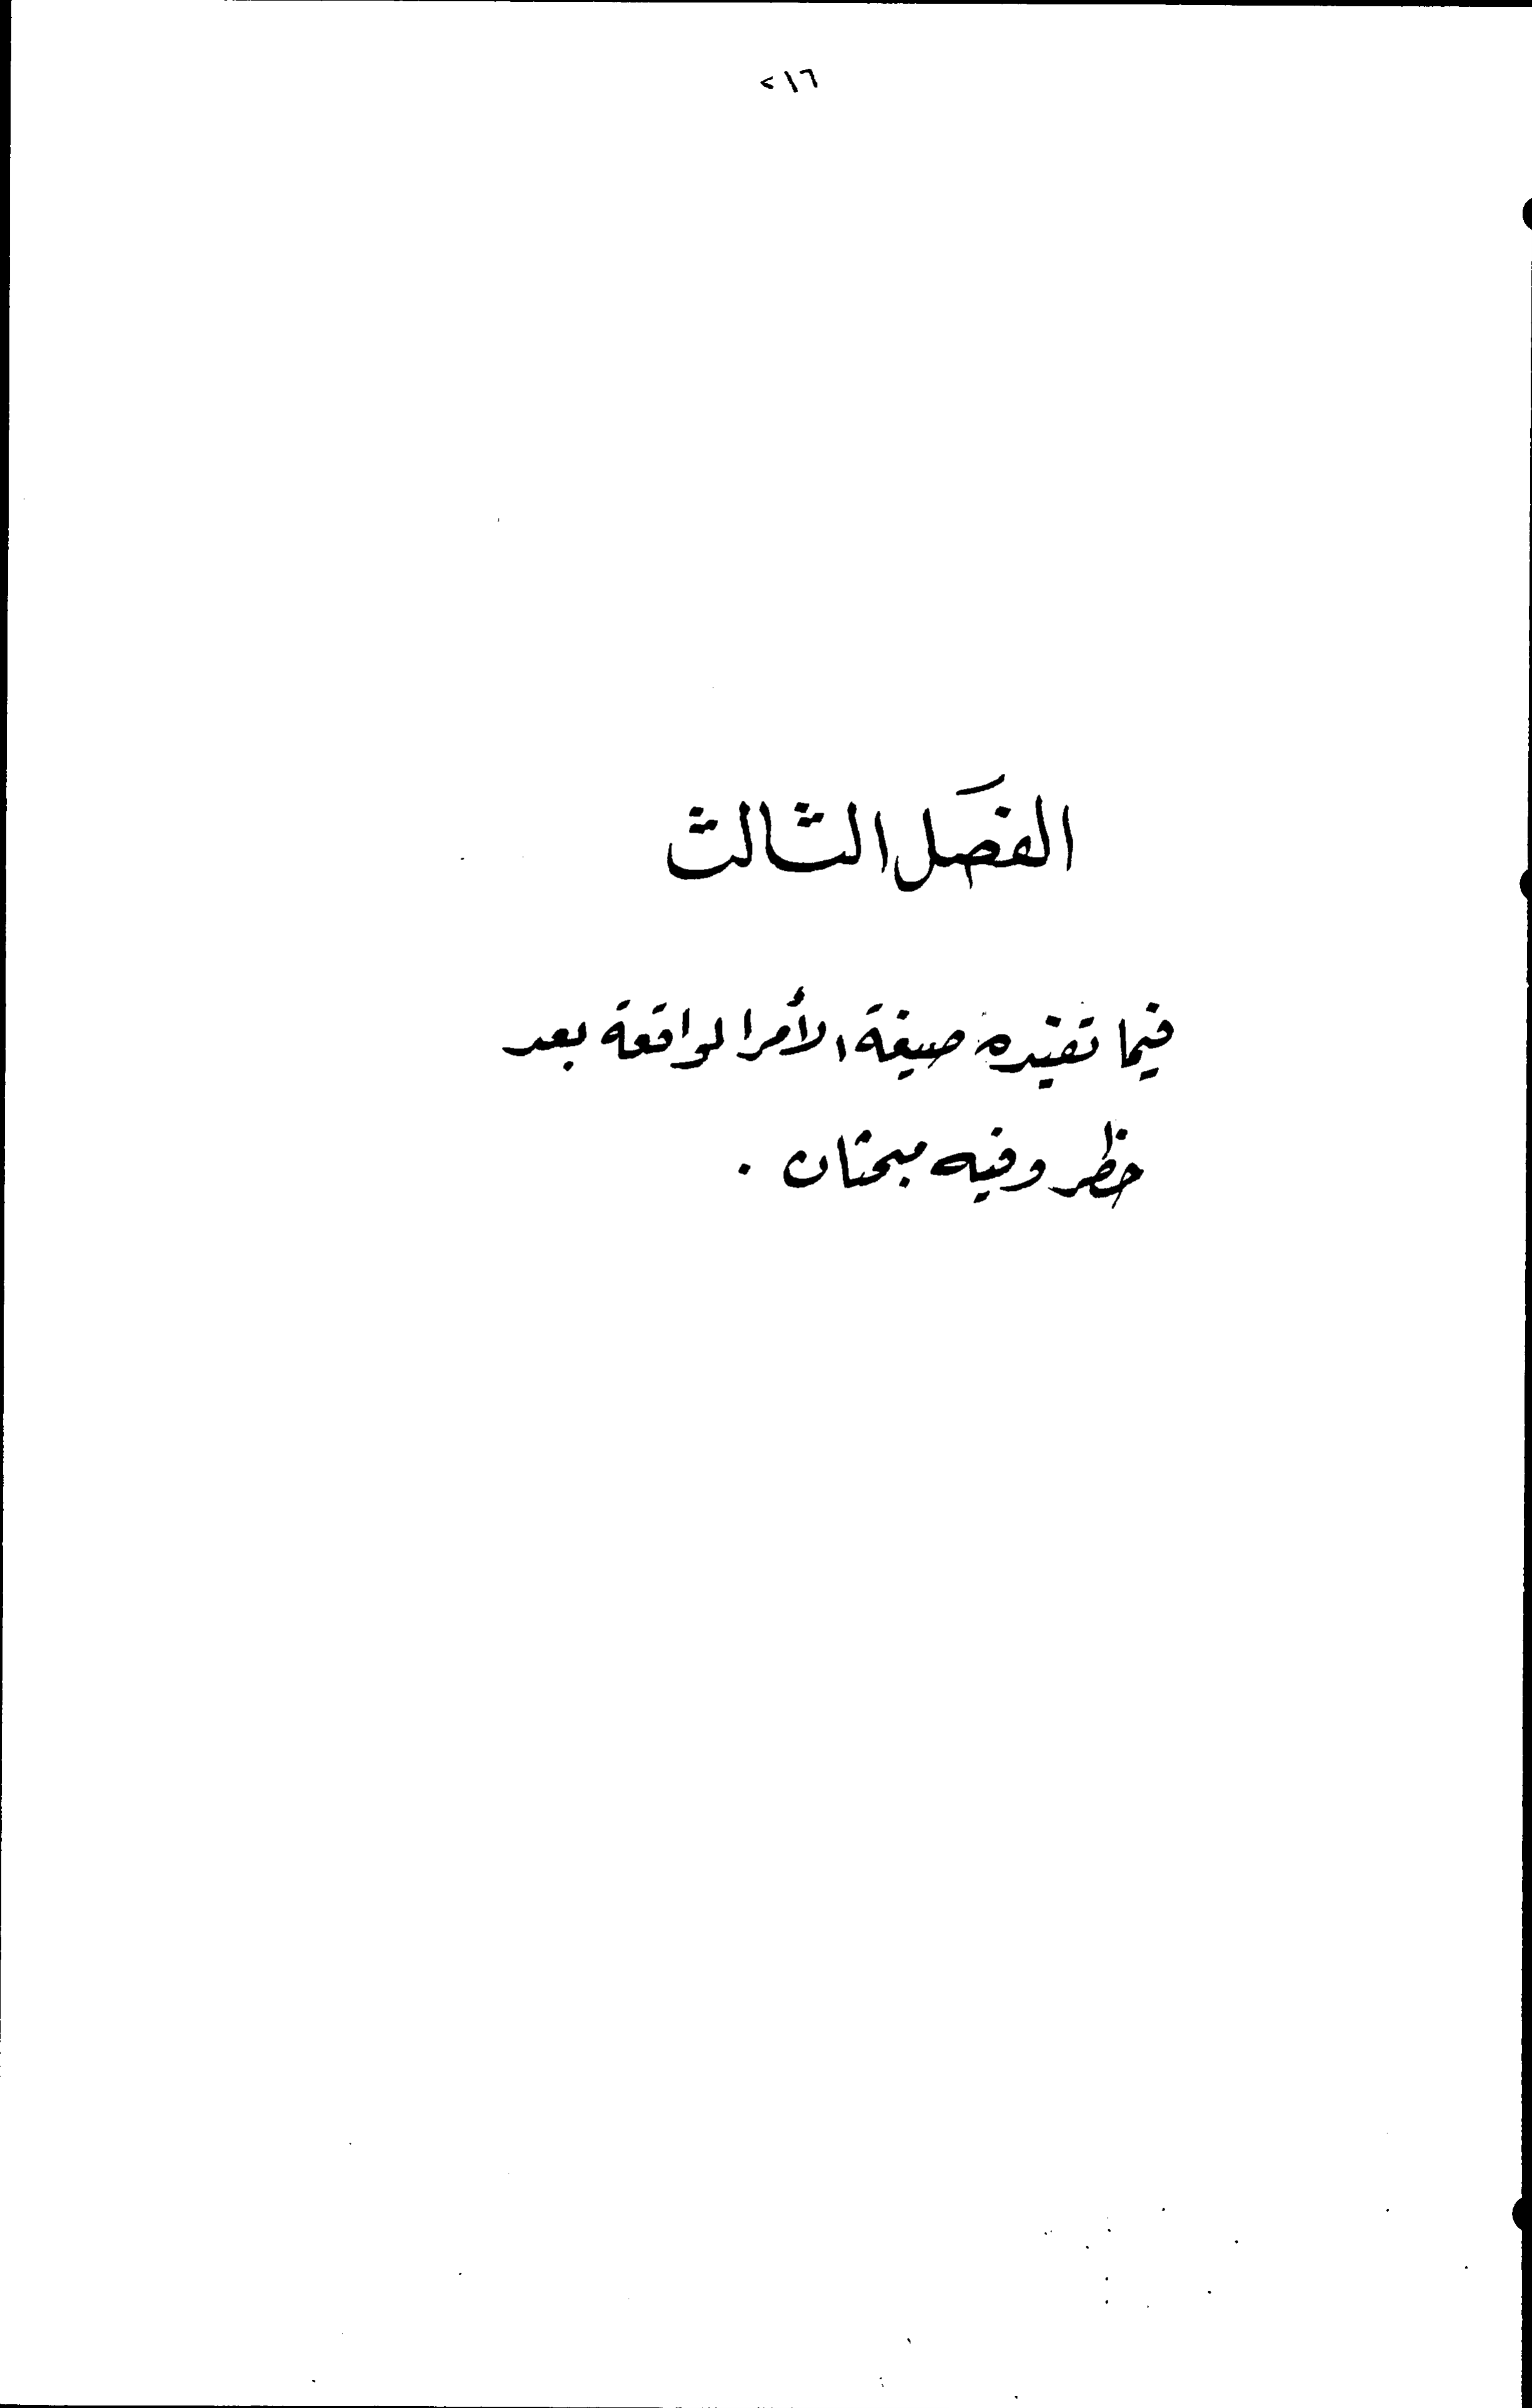 ٢١٦
الفصَل الثالث
فيما تفيده صيغة الأمر الواقعة بعد
حظر وفيه مبحثان .